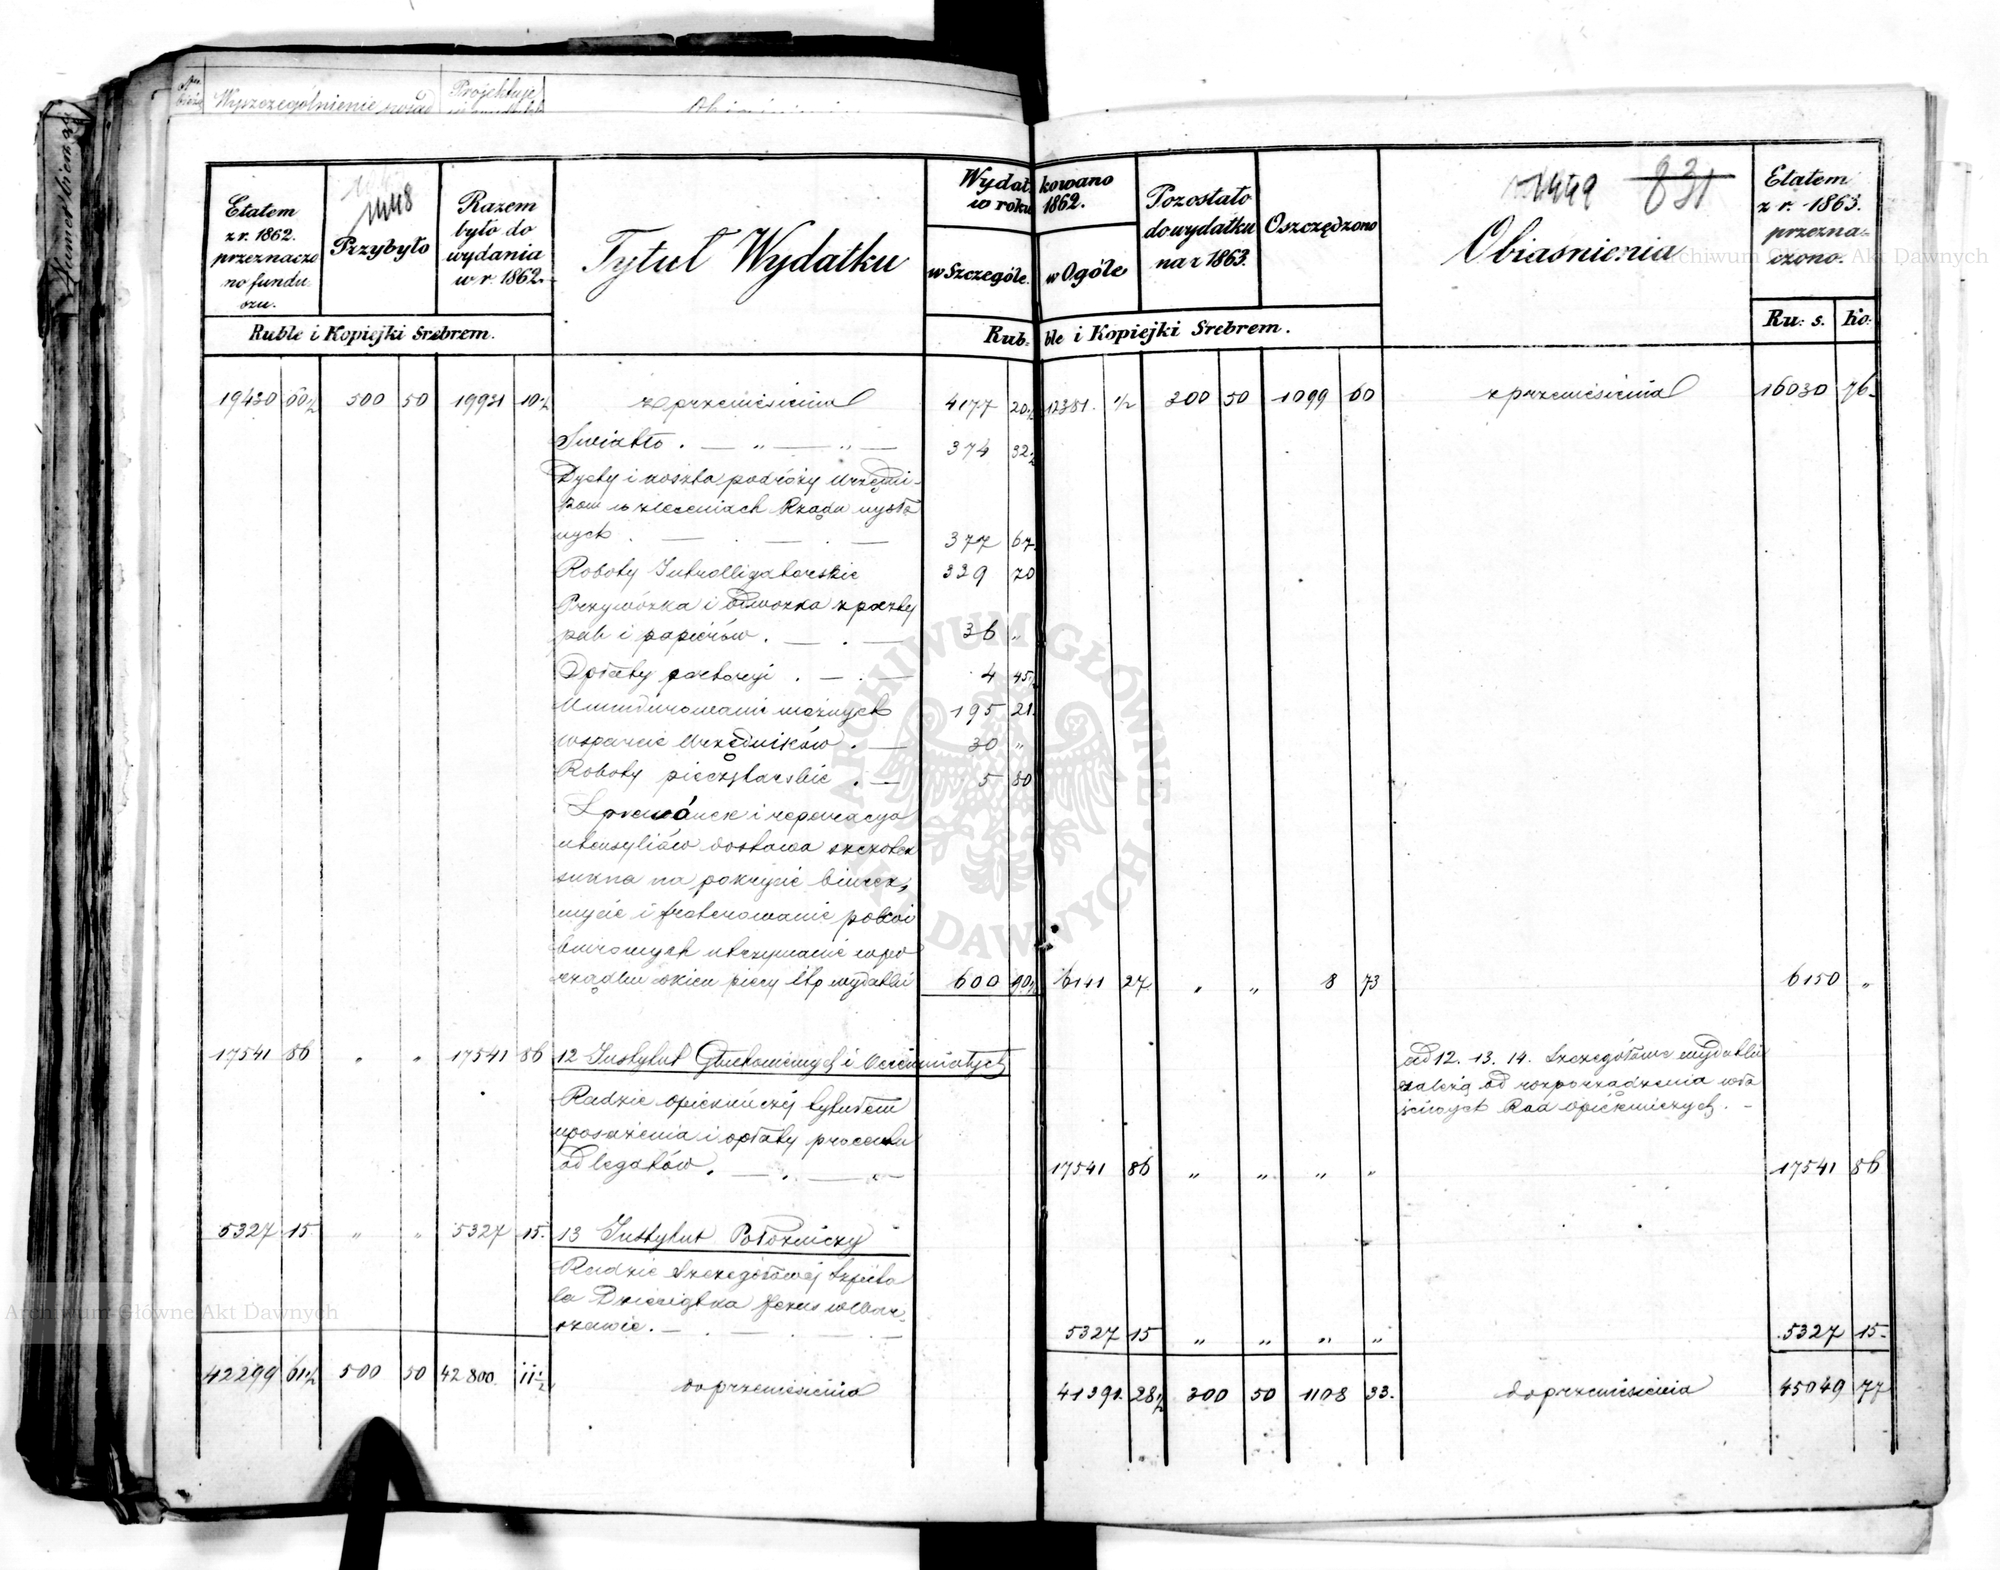 Wyszczególnienie posad
Projektuje
Numer bieżący
1448
1449 831
Etatem
z r. 1862.
przeznaczo
no fundu
szu.
Przybyło
Razem
było do
wydania
w r. 1862.
Tytuł Wydatku
Wydatkowano
w roku 1862.
w Szczególe.
w Ogóle
Pozostało
do wydatku
na r 1863.
Oszczędzono
Obiaśnienia
Etatem
z r. 1863.
przezna-
czono.
Ruble i Kopiejki Srebrem.
Rub: ble i Kopiejki Srebrem.
Ru: s. Ko:
19420 60½ 500 50 19921 10½ z przeniesienia 4177 20½ 12381. ½ 200 50 1099 60 z przeniesienia 16030 76
Światło . — „ — „ — 374 32½
Dyety i koszta podróży Urzędni-
ków w zleceniach Rządu wysła
nych . — . — . — 377 67.
Roboty Introlligatorskie 339 70
Przywózka i odwózka z poczty
pak i papierów . — . — 36 „
Opłaty portoryi . — . — 4 45½
Umundurowanie woźnych 195 21.
Wsparcie Urzędników . — 30 „
Roboty pieczętarskie . — 5 80
Sprawunek i reparacya
utensyliów dostawa szczotek
sukna na pokrycie biurek,
mycie i froterowanie pokoi
biurowych utrzymanie w po
rządku okien piecy itp wydatki 600 90½ 6141 27 „ „ 8 73 6150 „
17541 86 „ „ 17541 86 12 Instytut Głuchoniemych i Ociemniałych
ad 12. 13. 14. Szczegółowe wydatki
zależą od rozporządzenia wła
ściwych Rad Opiekuńczych. —
Radzie opiekuńczej tytułem
uposażenia i opłaty procentu
od legatów. — . — 17541 86 „ „ „ „ 17541 86
5327 15. „ „ 5327 15. 13 Instytut Położniczy
Radzie Szczegółowej Szpita
la Dzieciątka Jezus w War-
szawie. — . — . — 5327 15 „ „ „ „ 5327 15
42299 61½ 500 50 42800. 11½ do przeniesienia 41391. 28½ 200 50 1108 33. do przeniesienia 45049 77
ARCHIWUM GŁÓWNE AKT DAWNYCH
Archiwum Główne Akt Dawnych
Archiwum Główne Akt Dawnych